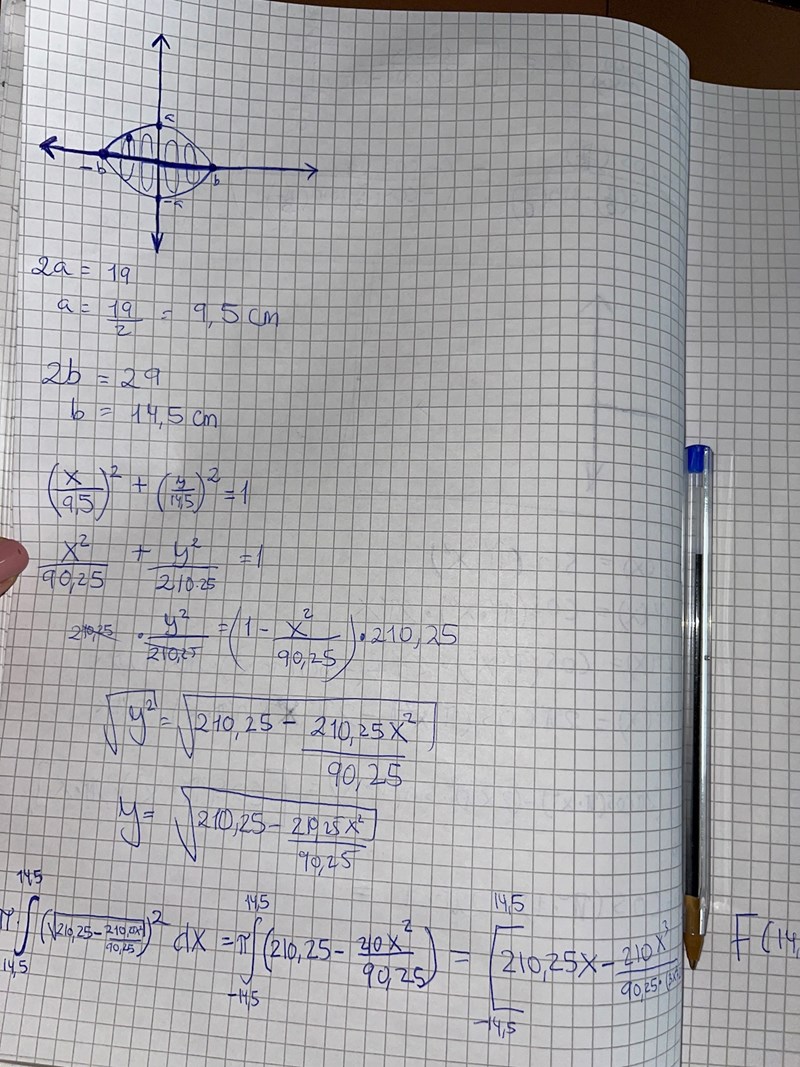 a
-b b
-a
2a = 19
a = 19/2 = 9,5 cm
2b = 29
b = 14,5 cm
(x/9,5)² + (y/14,5)² = 1
x²/90,25 + y²/210.25 = 1
210,25 · y²/210,25 = (1 - x²/90,25) · 210,25
√y² = √(210,25 - 210,25x²/90,25)
y = √(210,25 - 210,25x²/90,25)
π · ∫ 14,5 14,5 (√(210,25 - 210,25x²/90,25))² dx = π ∫ 14,5 -14,5 (210,25 - 210x²/90,25) = [ 14,5 -14,5 210,25x - 210x³/90,25·
F(14,